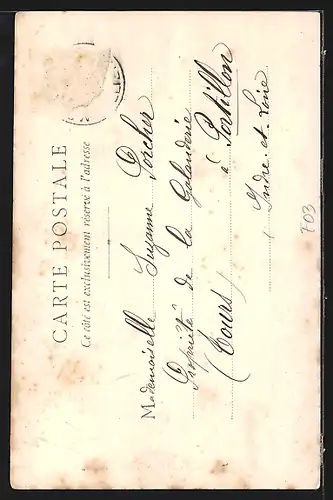 CARTE POSTALE
Ce côté est exclusivement réservé à l'adresse
Mademoiselle Suzanne Porcher
Propriété de la Galanderie
à Portillon
(Tours)
Indre et Loire
703